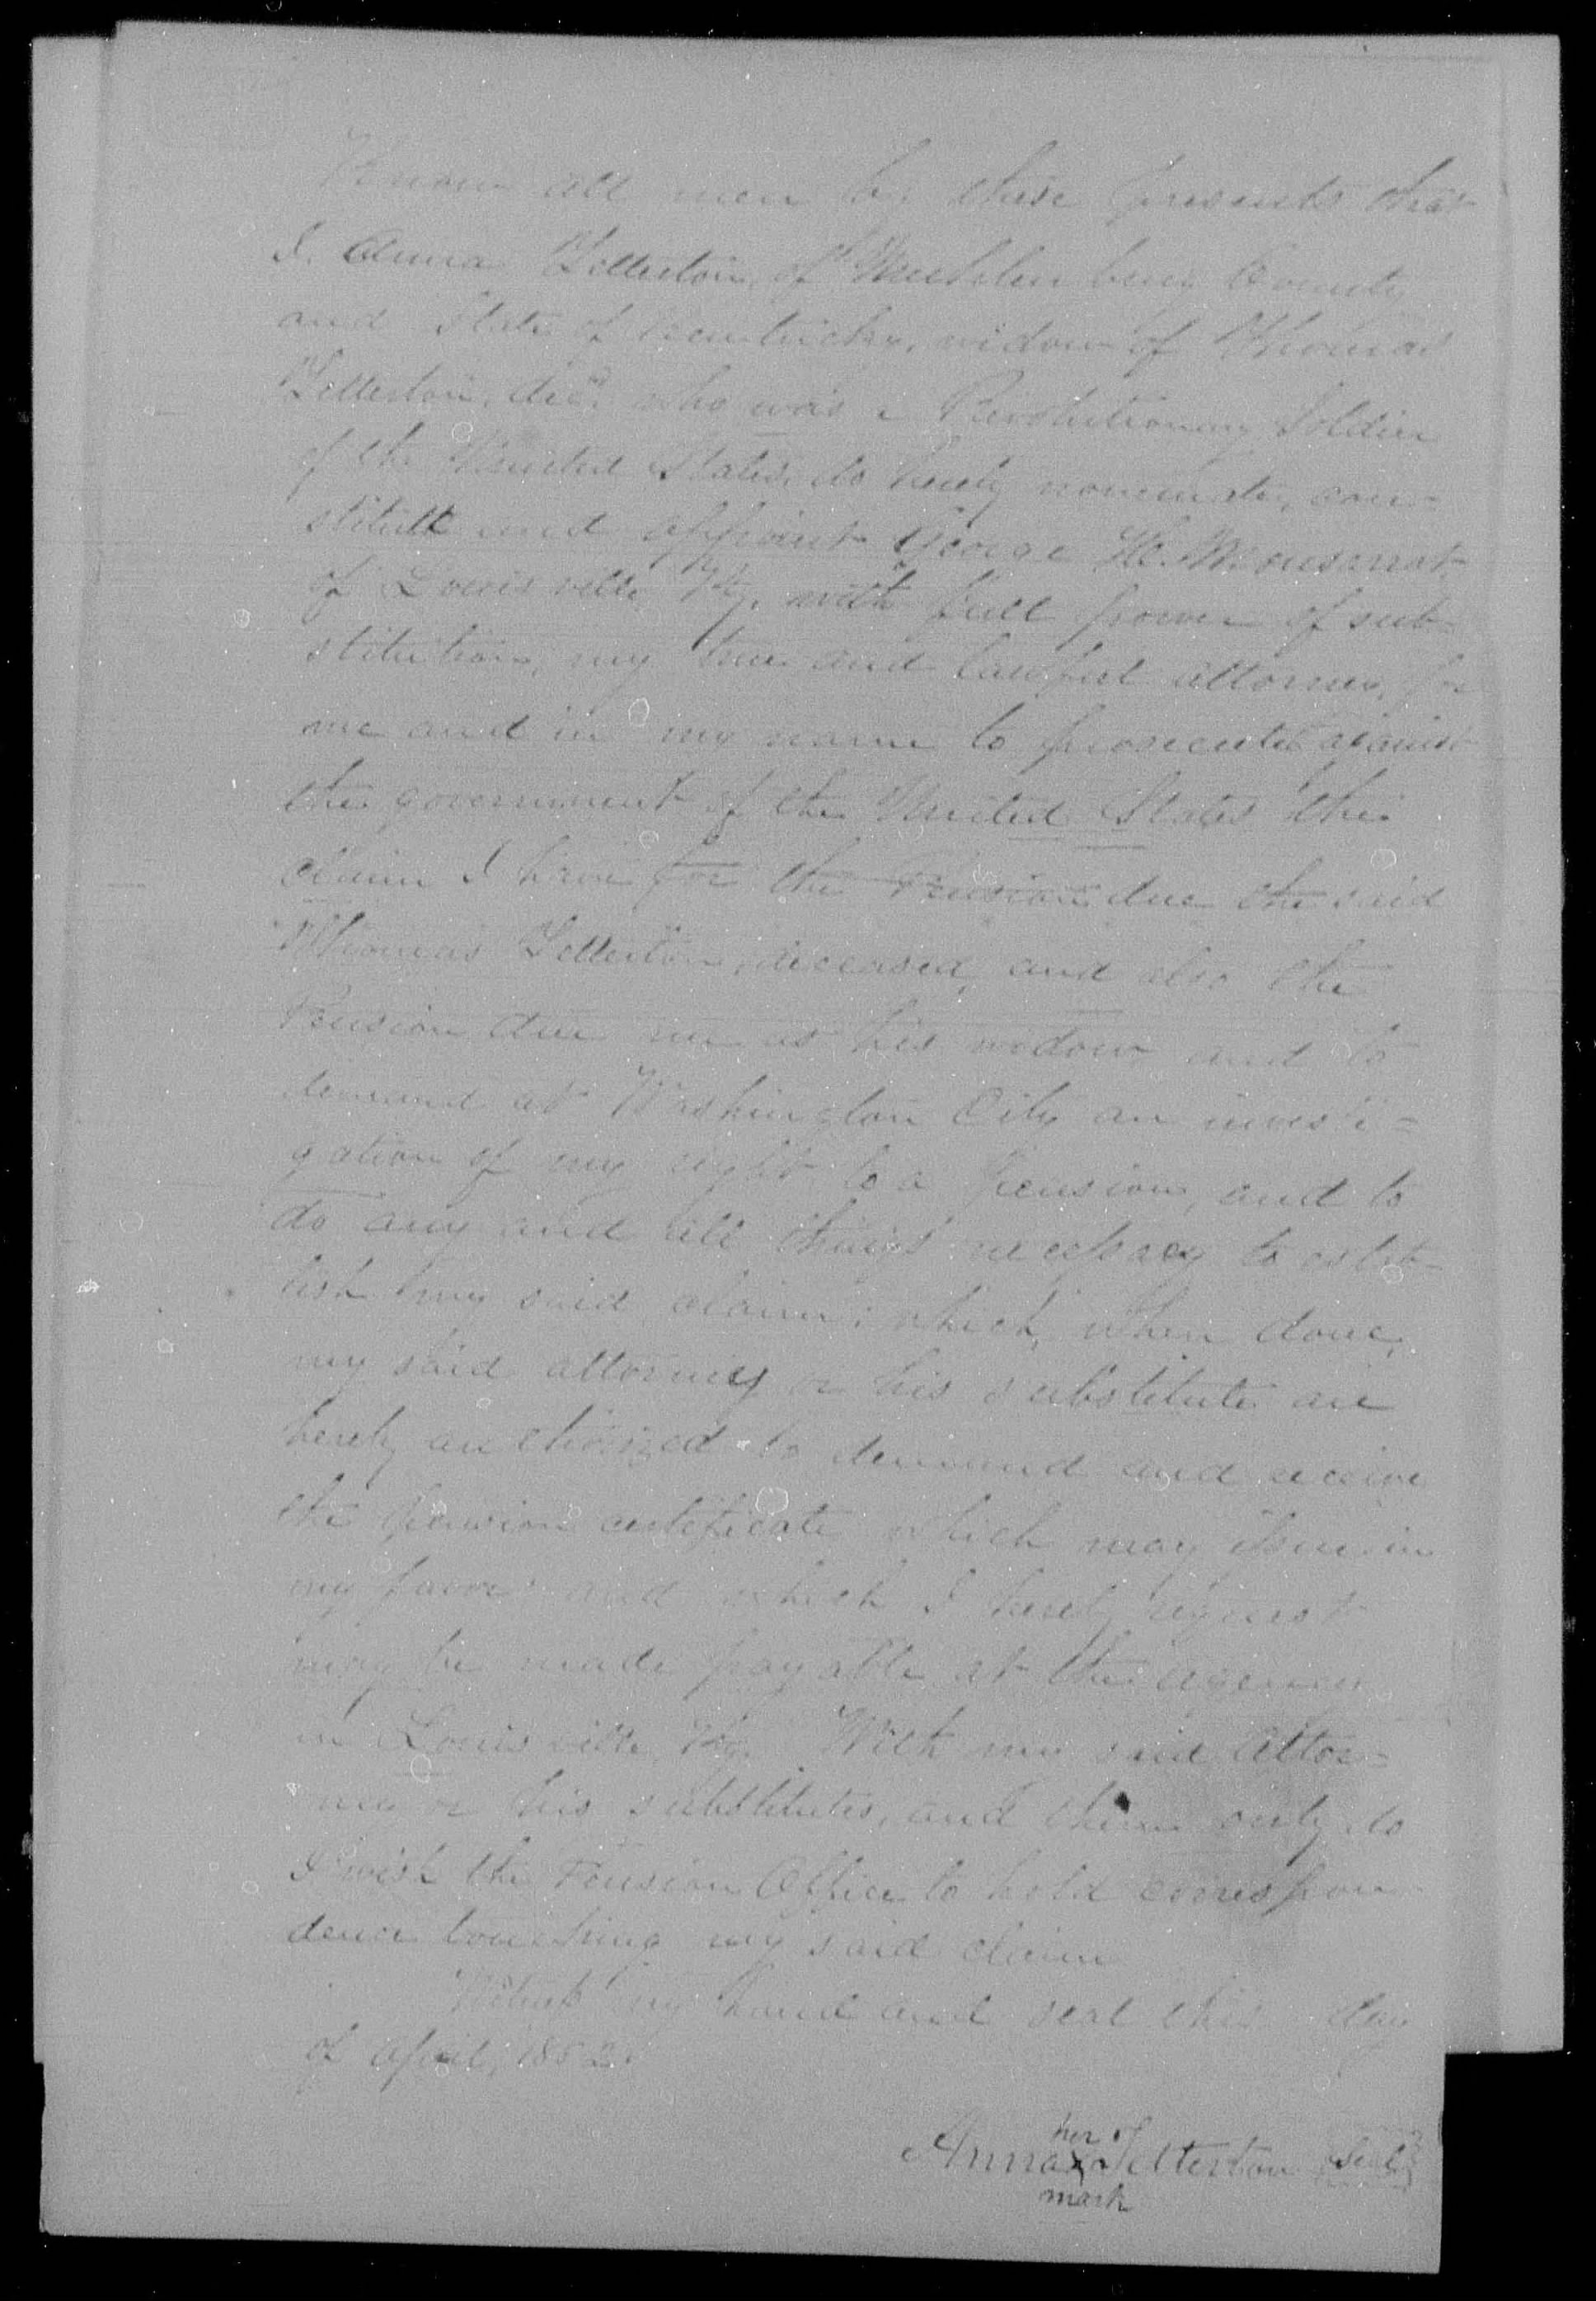 Know all men by these presents that
I. Anna Tetterton, of Muhlenberg County
and State of Kentucky, widow of Thomas
Tetterton, decd. who was a Revolutionary Soldier
of the United States, do hereby nominate, con=
stitute and appoint George H. Monsarrat
of Louisville Ky. with full power of sub-
stitution, my true and lawful attorney, for
me and in my name to prosecute against
the government of the United States the
claim I have for the Pension due the said
Thomas Tetterton, deceased, and also the
Pension due me as his widow and to
demand at Washington City an investi=
gation of my right to a pension, and to
do any and all things necessary to estab-
lish my said claim; which, when done,
my said attorney or his substitute are
hereby authorized to demand and receive
the pension certificate which may issue in
my favor and which I hereby request
may be made payable at the agency
in Louisville, Ky. With my said Attor=
ney or his substitutes, and them only do
I wish the Pension Office to hold correspon-
dence touching my said claim
Witness my hand and seal this day
of April, 1852.
her
Anna X Tetterton Seal
mark